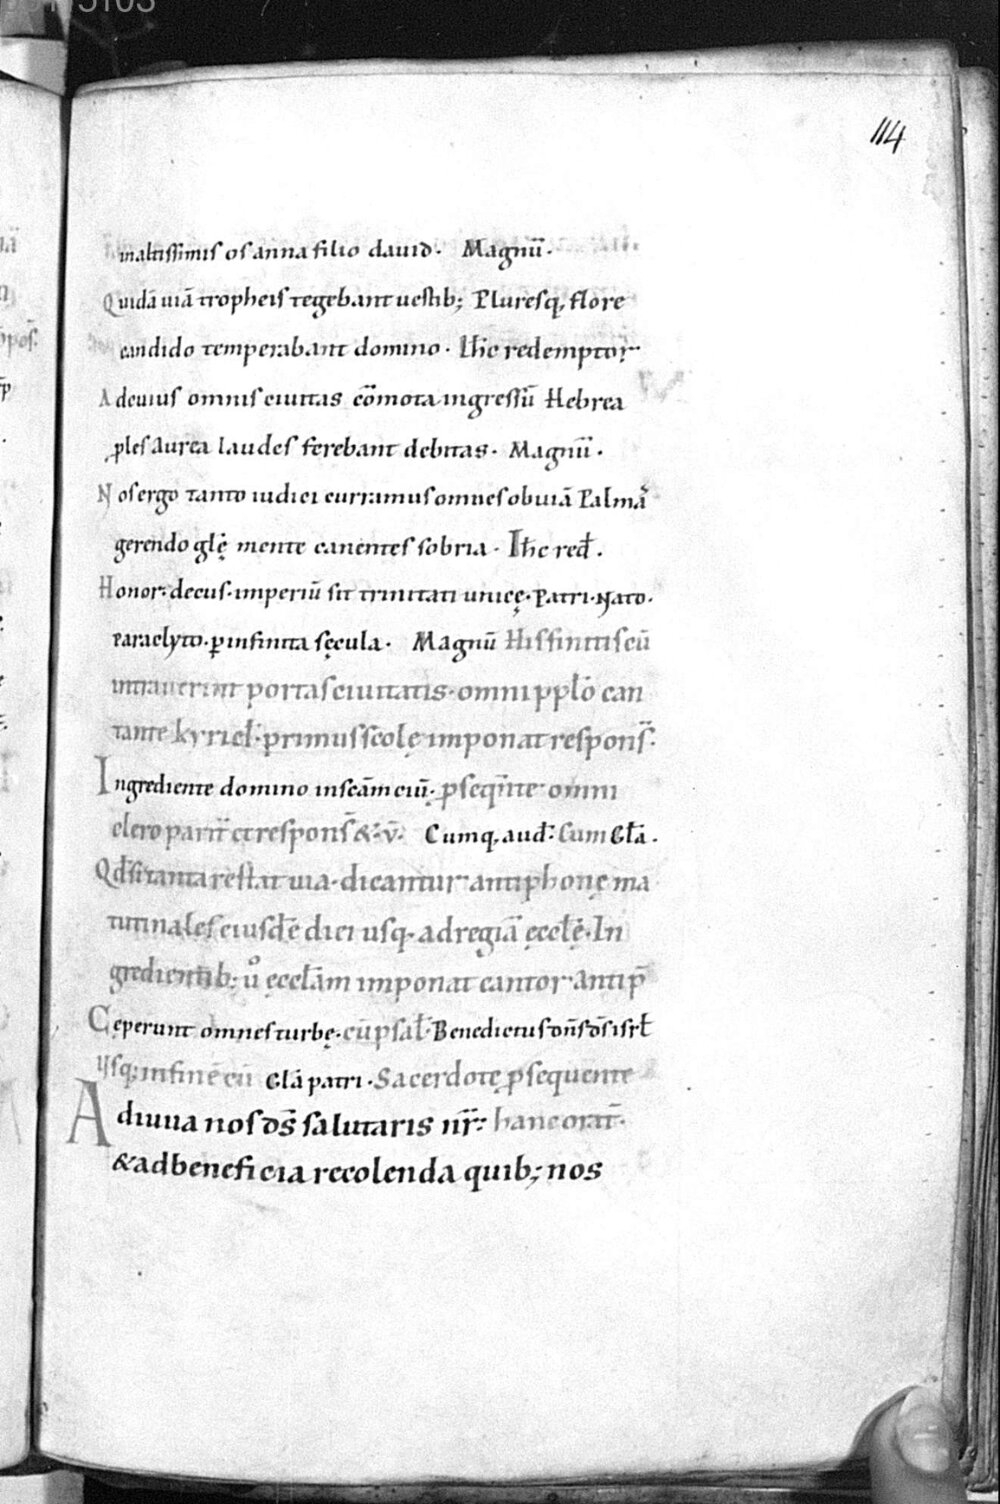 114
inaltissimis osanna filio dauid. Magnū̄.
Quidā uiā tropheis tegebant uestib; Pluresq, flore
candido temperabant domino. Ih̄c redemptor
Adeuius omnis ciuitas cōmota ingressū Hebrea
ples aurea laudes ferebant debitas. Magnū̄.
Nos ergo tanto iudici curramus omnes obuiā Palmā
gerendo glę̄ mente canentes sobria. Ih̄c red̄.
Honor. decus. imperiū sit trinitati unicę. Patri. Nato.
Paraclyto. ꝑ infinita sęcula. Magnū His finitis cū
intrauerint portas ciuitatis. omni pplō can
tante kyriel̄. primus scolę imponat respons̄.
Ingrediente domino in scām ciū̄. ꝓseqn̄te omni
clero parit̄ et respons̄ & v̄. Cumq, aud̄: Cum Gl̄a.
Qd̄ si tanta restat uia. dicantur antiphonę ma
tutinales eiusdē diei usq, ad regiā ęccl̄ę. In
gredientib; ů ęccl̄am imponat cantor antip̄
Cęperunt omnes turbę. cū psal̄. Benedictus dn̄s ds̄ isrl̄
Usq; in finē cū Gl̄a patri. Sacerdotę ꝓsequente
Adiuua nos ds̄ salutaris nr̄: hanc orat̄.
& ad beneficia recolenda quib; nos